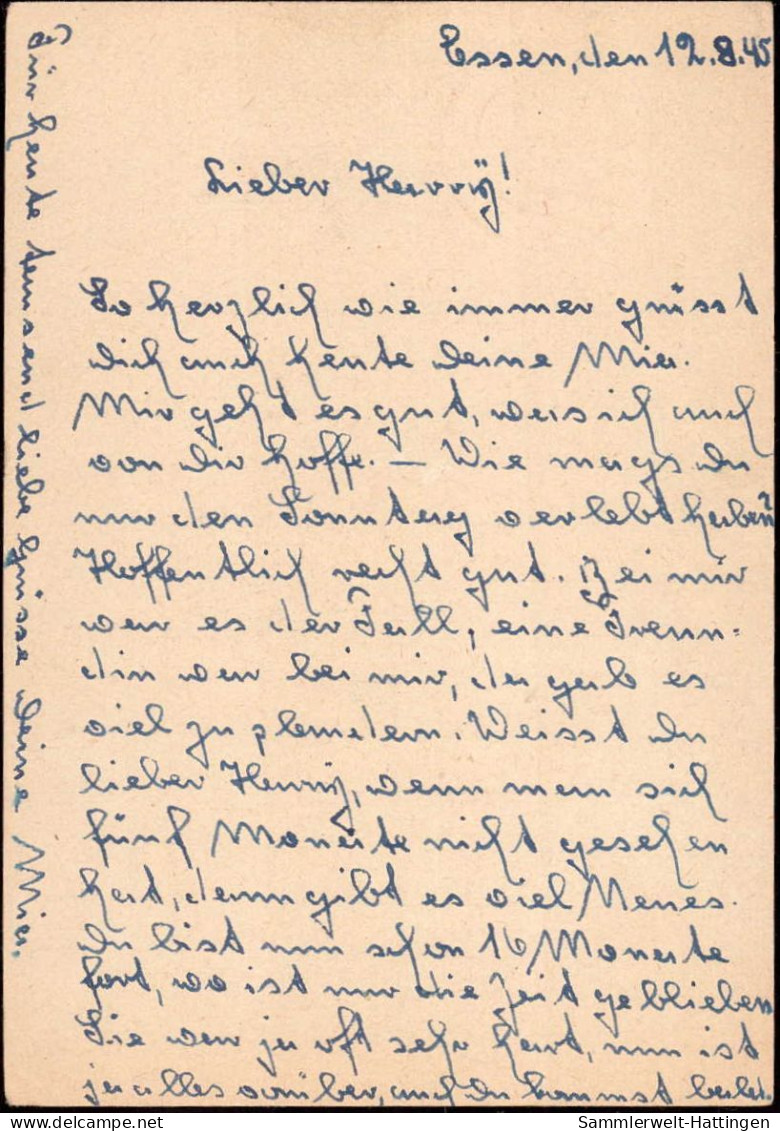 Essen, den 12.8.45
Lieber Harrÿ!
So herzlich wie immer grüsst
dich auch heute deine Mia.
Mir geht es gut, was ich auch
von dir hoffe. — Wie mags du
nur den Sonntag verlebt haben?
Hoffentlich recht gut. Bei mir
war es der Fall, eine Freun-
din war bei mir, da gab es
viel zu plaudern. Weisst du
lieber Harrÿ, wenn man sich
fünf Monate nicht gesehen
hat, dann gibt es viel Neues.
Du bist nun schon 16 Monate
fort, wo ist nur die Zeit geblieben
Sie war ja oft sehr hart, nun ist
ja alles vorüber, auch du kommst bald.
Für heute tausend liebe Grüsse deine Mia.
Sammlerwelt-Hattingen